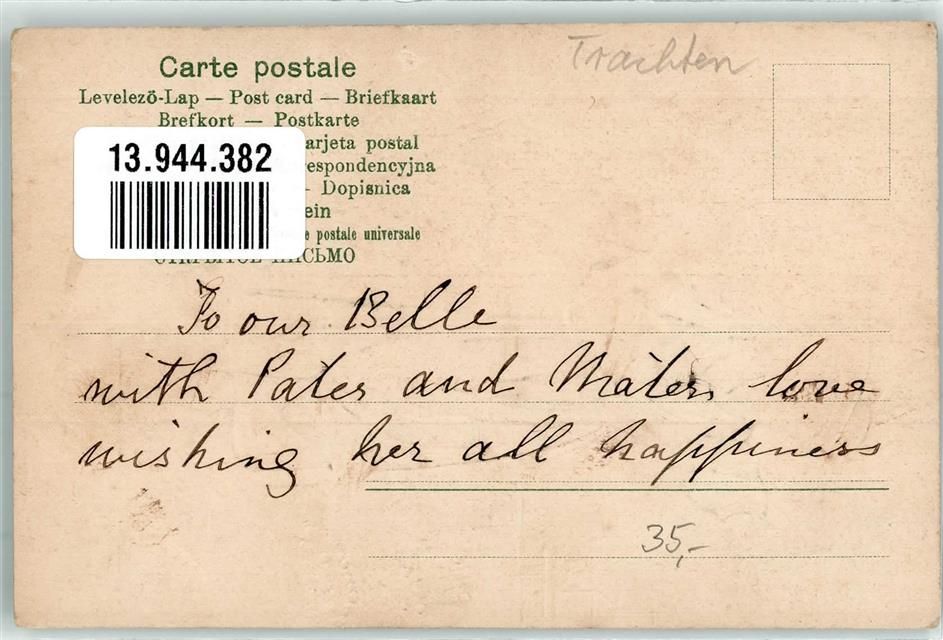 Carte postale
Trachten
Levelező-Lap — Post card — Briefkaart
Brefkort — Postkarte
arjeta postal
respondencyjna
- Dopisnica
ein
e postale universale
13.944.382
To our Belle
with Pater and Maters love
wishing her all happiness
35,-